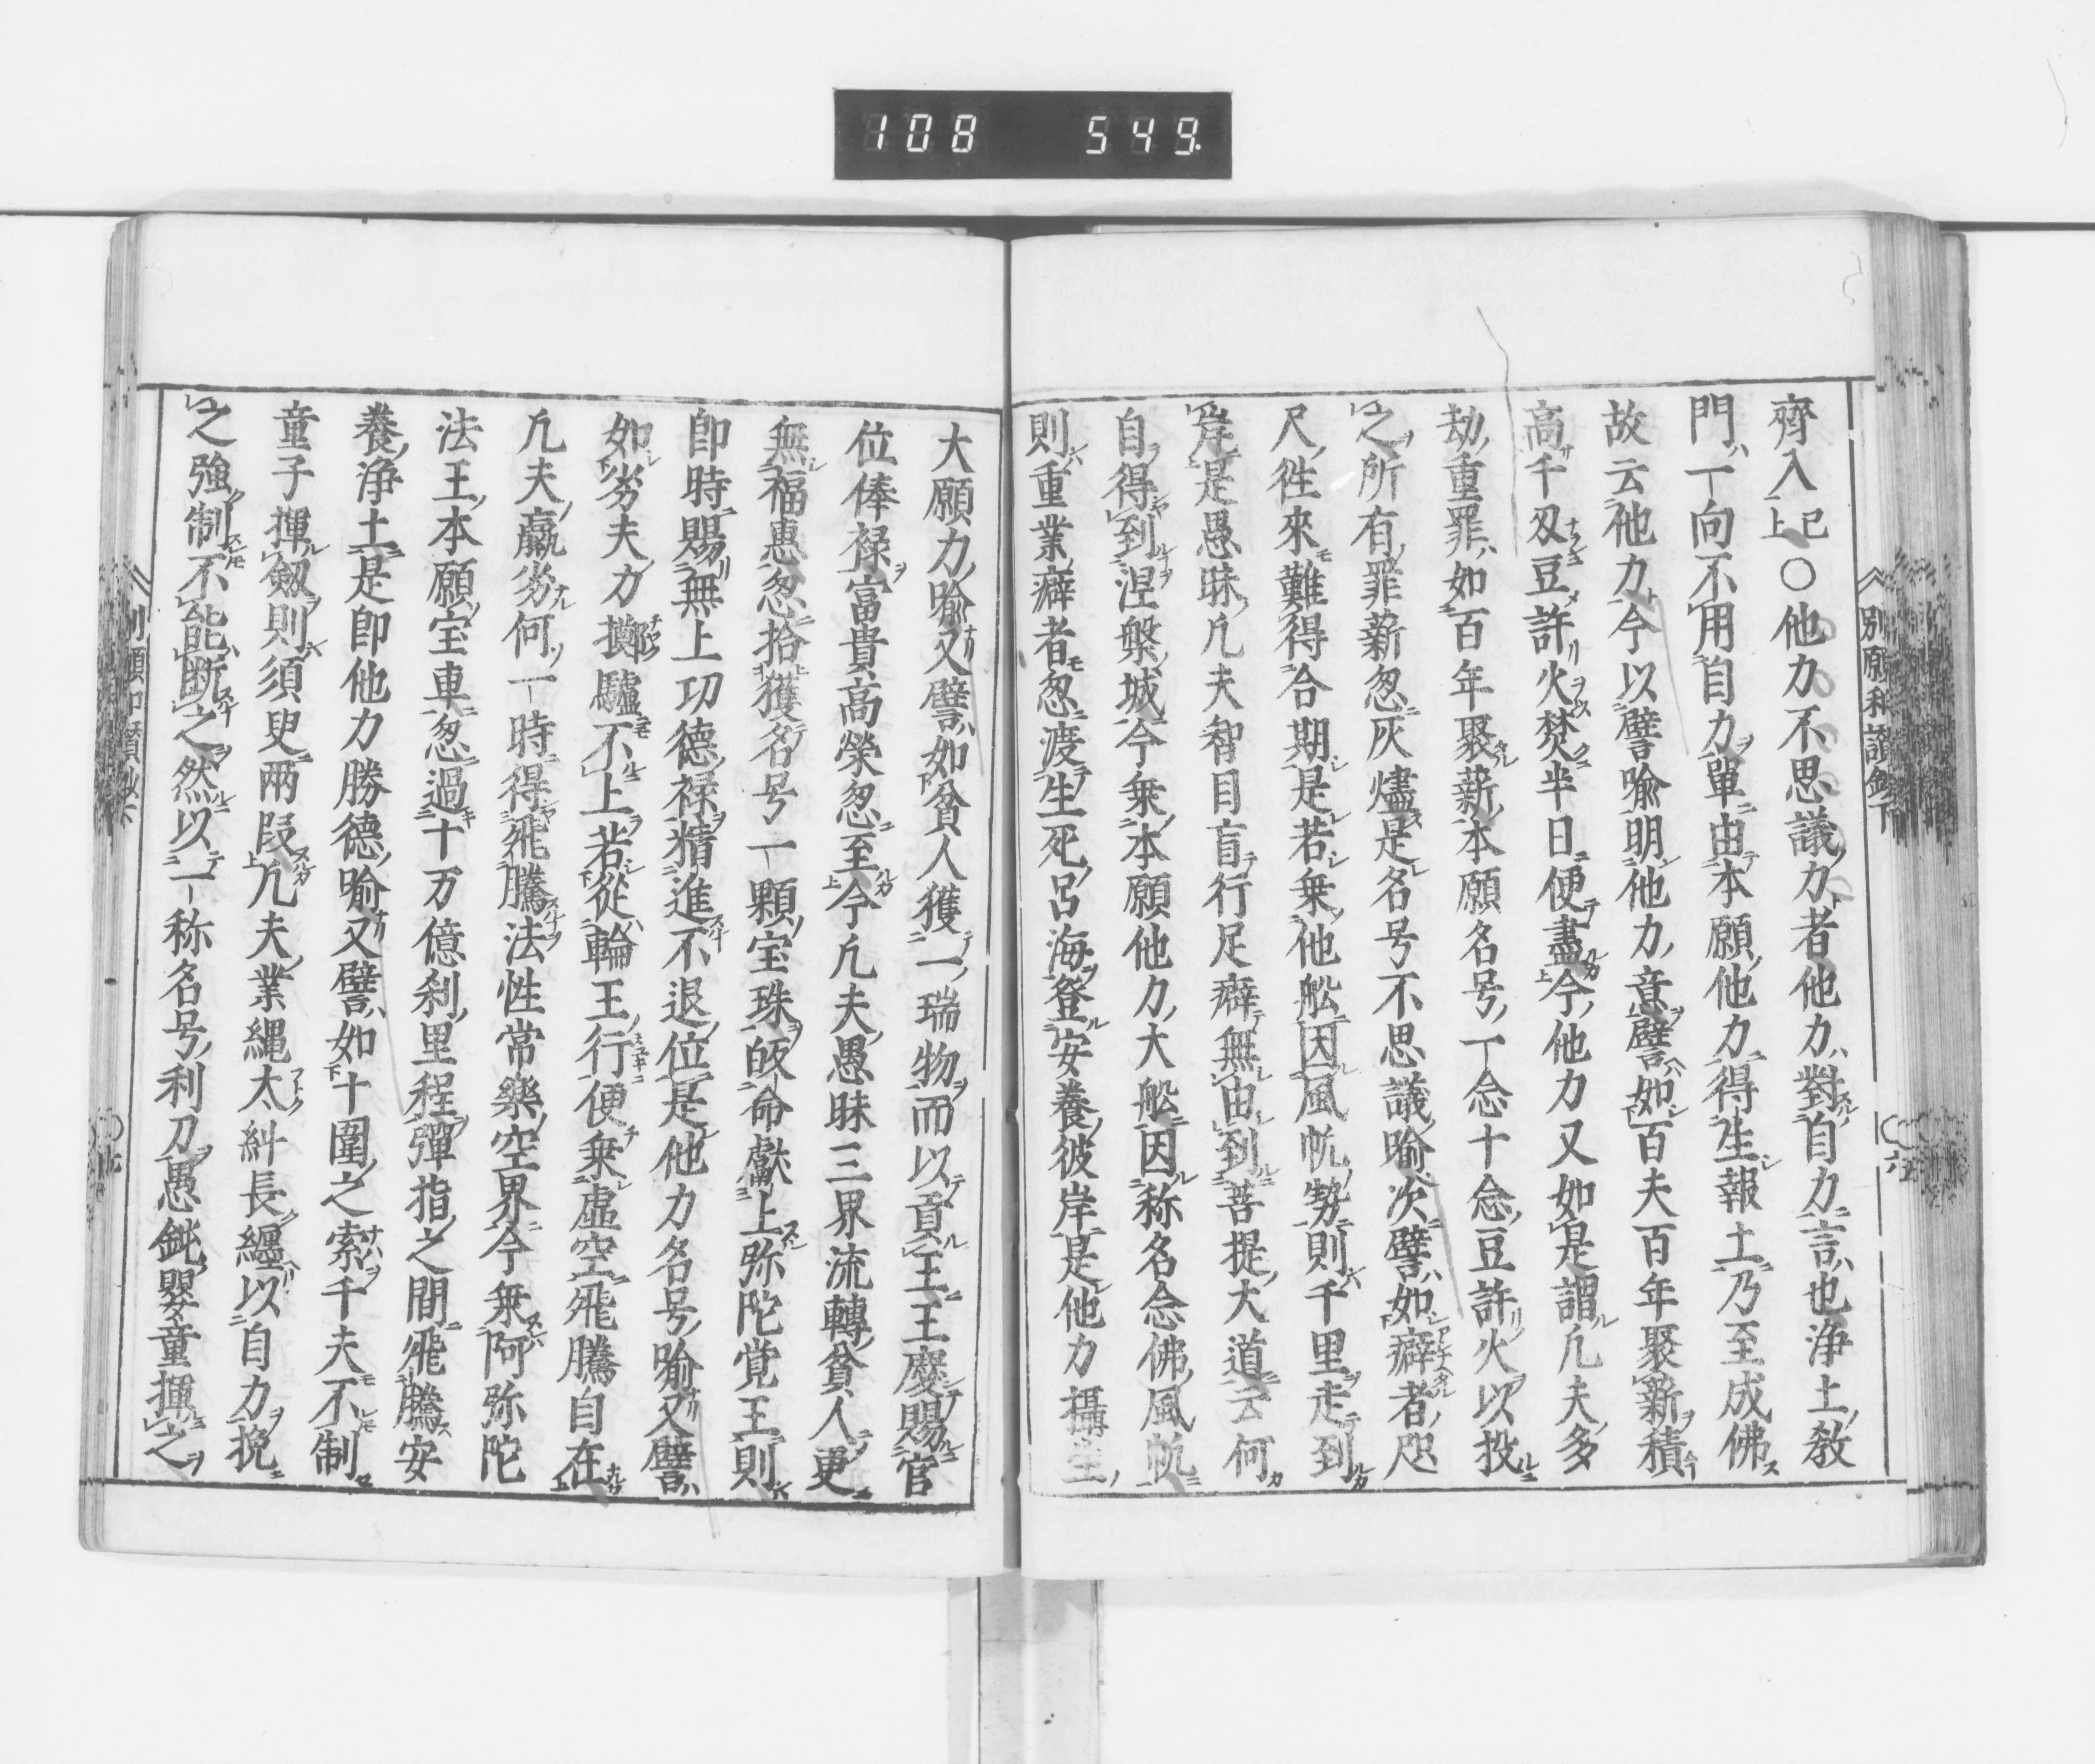 108 549.
別願和讃鈔下
齊入已上〇他力不思議力者他力對自力言也浄土教
門一向不用自力單由本願他力得生報土乃至成佛
故云他力今以譬喩明他力意譬如百夫百年聚薪積
高千刄豆許火焚半日便盡今他力又如是謂凢夫多
劫重罪如百年聚薪本願名号一念十念豆許火以投
之所有罪薪忽灰燼是名号不思議喩次譬如癖者咫
尺徃來難得合期是若乗他舩因風帆勢則千里走到
岸是愚昧凢夫智目盲行足癖無由到菩提大道云何
自得到涅槃城今乗本願他力大舩因称名念佛風帆
則重業癖者忽渡生死苦海登安養彼岸是他力攝生
大願力喩又譬如貧人獲一瑞物而以貢王王慶賜官
位俸禄富貴高榮忽至今凢夫愚昧三界流轉貧人更
無福惠忽拾獲名号一顆宝珠皈命獻上弥陀覚王則
即時賜無上功德禄精進不退位是他力名号喩又譬
如劣夫力擲驢不上若從輪王行便乗虚空飛騰自在
凢夫羸劣何一時得飛騰法性常樂空界今乗阿弥陀
法王本願宝車忽過十万億刹里程彈指之間飛騰安
養浄土是即他力勝德喩又譬如十圍之索千夫不制
童子揮劔則須臾兩段凢夫業縄太糾長纒以自力挽
之強制不能断之然以一称名号利刀愚鈍嬰童揮之